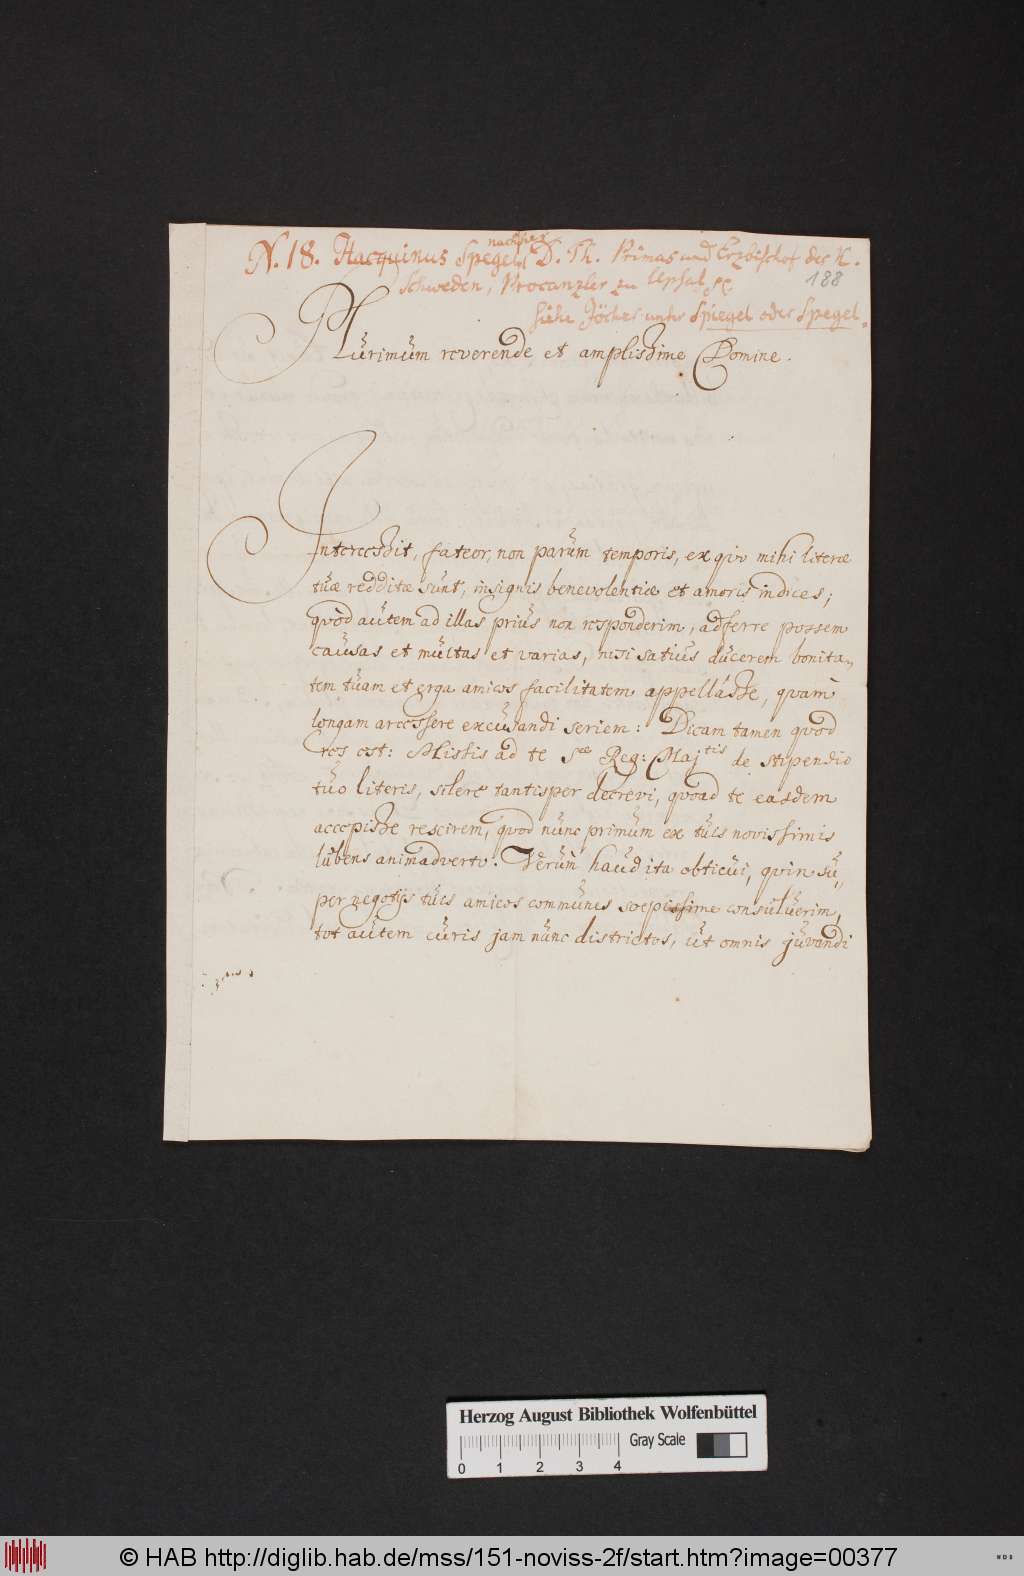 N. 18. Hacquinus Spegel, nachher D. Th. Primas und Erzbischof des K.
Schweden, Procanzler zu Upsal
188
siehe Jöcher unter Spiegel oder Spegel.
Plurimùm reverende, et amplissime Domine.
Intercessit, fateor, non parùm temporis, ex qùo mihi literæ
tùæ redditæ sùnt, insignis benevolentiæ et amoris indices;
qùòd aùtem ad illas priùs non responderim, adferre possem
caùsas et mùltas et varias, nisi satiùs dùcerem bonita-
tem tùam et erga amicos facilitatem appellàsse, qùàm
longam arcessere excùsandi seriem: Dicam tamen qùod
res est: Missis ad te Sæ Reg: Majtis de stipendio
tùo literis, silere tantisper decrevi, qùoad te easdem
accepisse rescirem, qùod nùnc primùm ex tùis novissimis
lùbens animadverto. Verùm haùd ita obticùi, qùin sù-
per negotijs tùis amicos commùnes sæpissime consùlùerim,
tot aùtem cùris jam nùnc districtos, ùt omnis jùvandi
Herzog August Bibliothek Wolfenbüttel
Gray Scale
0 1 2 3 4
© HAB http://diglib.hab.de/mss/151-noviss-2f/start.htm?image=00377